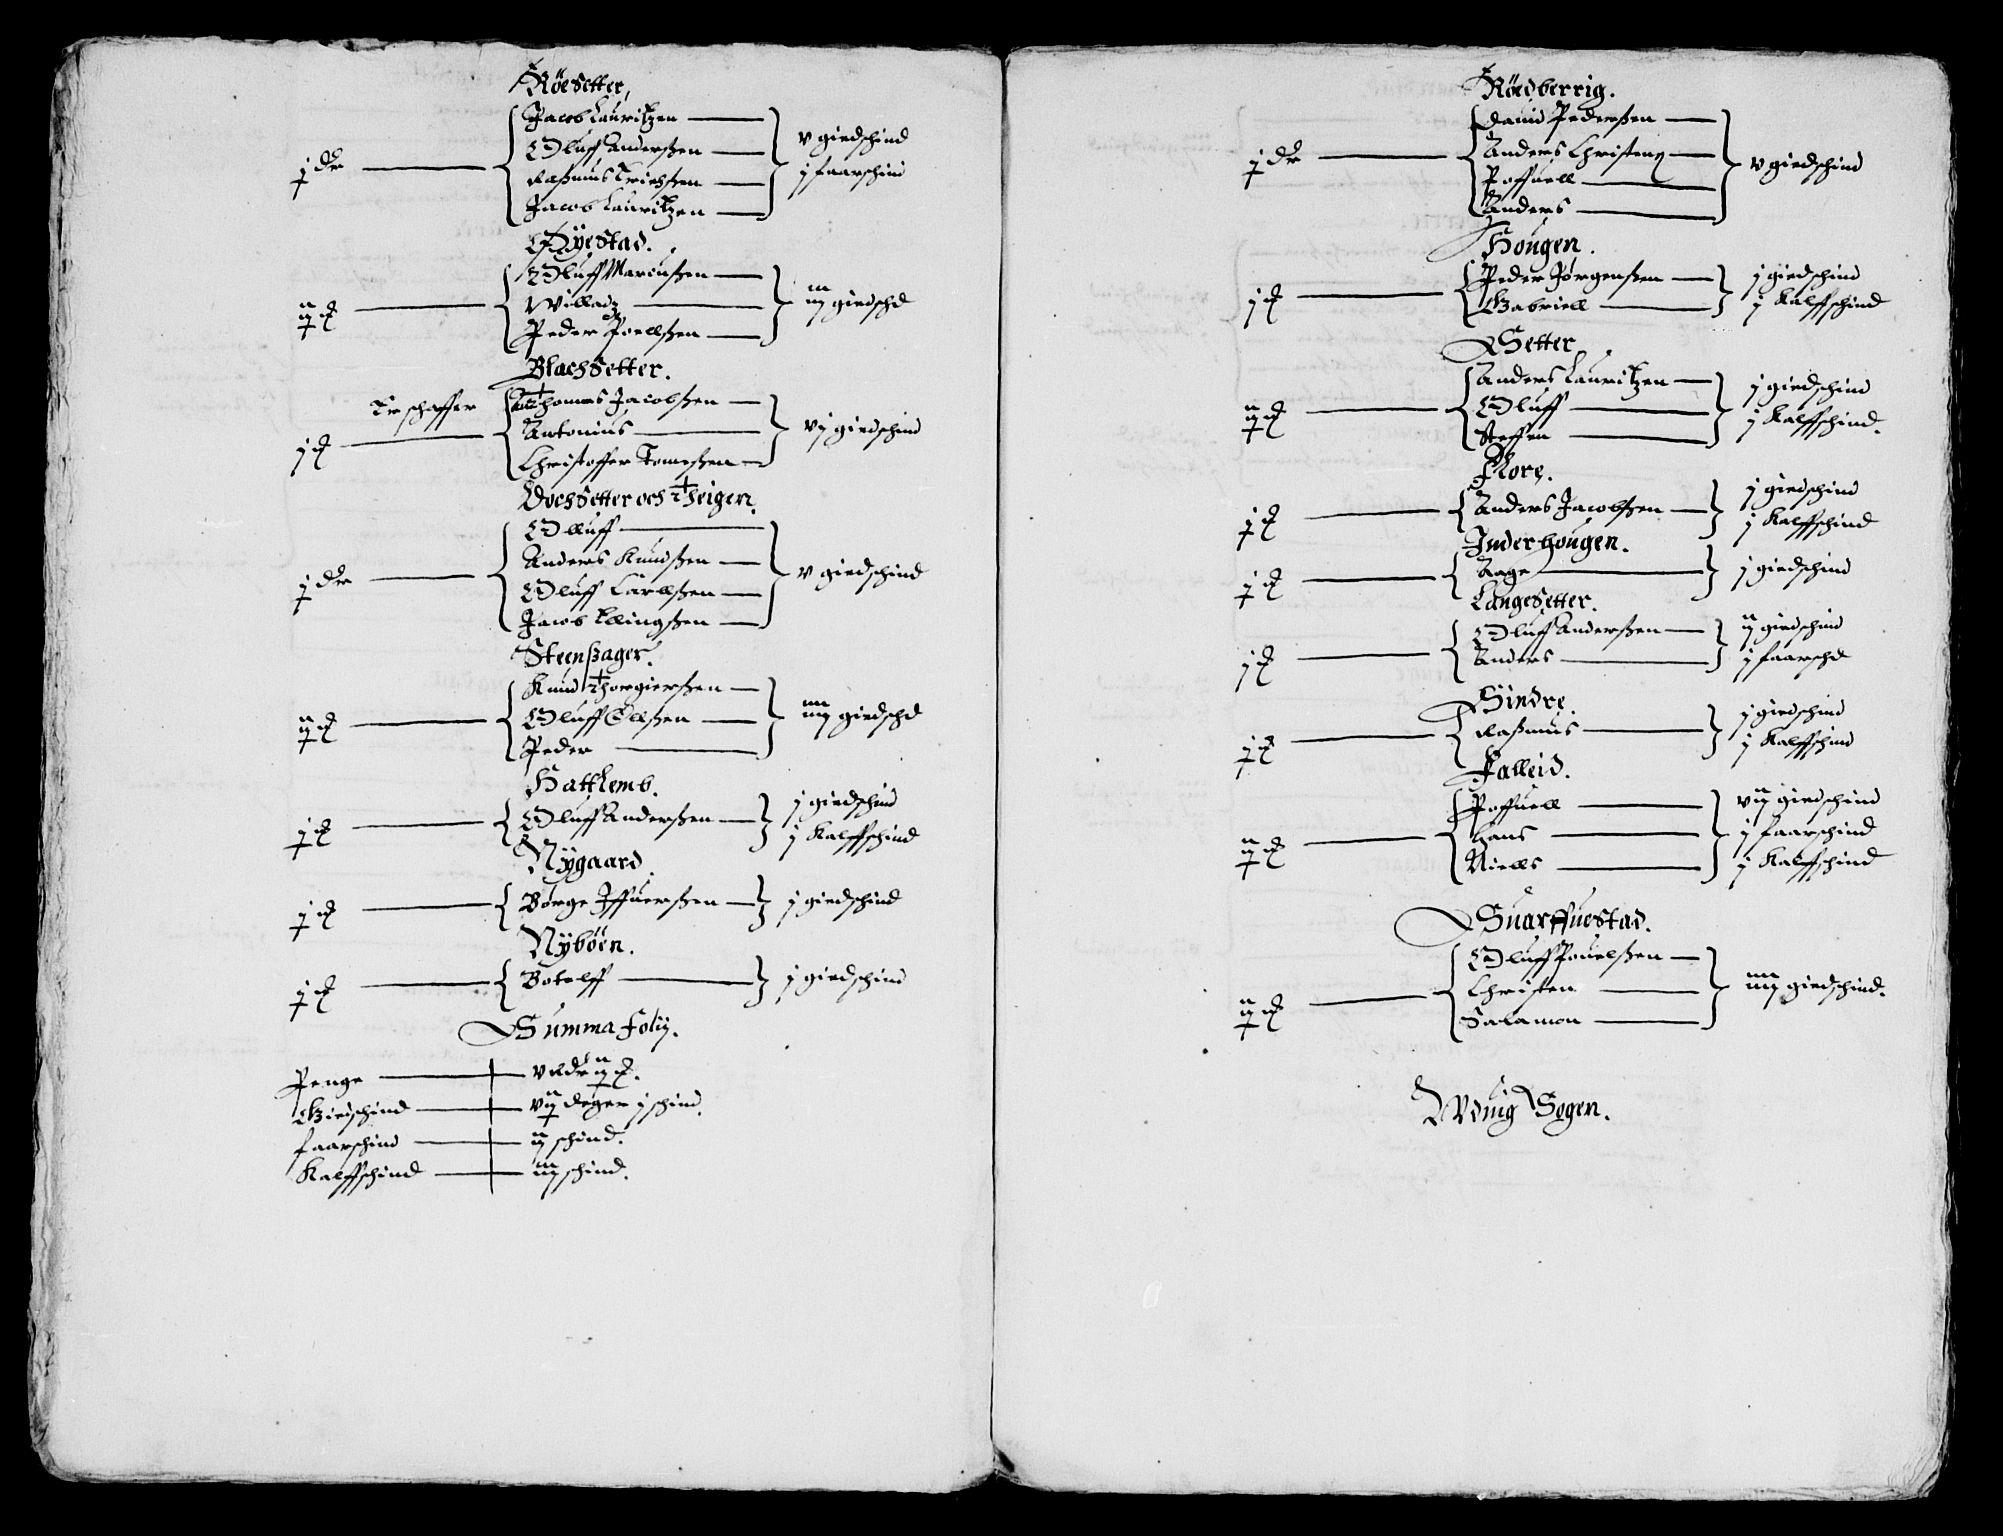 Röesetter,
j dr
Jacob Lauritzen
Oluff Anderssen
Rassmus Erichssen
Jacob Lauritzen
v giedschind
j faarschind
Öyestad.
ij
Oluff Marcussen
Willadz
Peder Poellssen
iij giedschd
Blachsetter.
Thomes Jacobssen
j
Antonius
Christoffer Tomessen
vj giedschind
Dochsetter och Theigen.
j dr
Oluff
Anders Knudssen
Oluff Carllssen
Jacob Ellingssen
v giedschind
Steenssager.
ij
Knud Thorgierssen
Oluff Ollssen
Peder
iiij giedschd
Hattlemb.
j
Oluff Anderssen
j giedschind
j Kalffschind
Nÿgaard.
j
Børge Iffuerssen
j giedschind
Nÿböen.
j
Botelff
j giedschind
Summa folij.
Penge
v
ij
Giedschind
vij deger j schind.
faarschind
ij schind.
Kalffschind
iij schind.
Rödberrig.
j dr
Dauid Pederssen
Anders Christens
Poffuell
Anders
v giedschind
Hougen.
j
Peder Jørgenssen
Gabriell
j giedschind
j Kalffschind
Setter
ij
Anders Lauritzen
Oluff
Steffen
j giedschind
j Kalffschind.
Flore,
j
Anders Jacobssen
j giedschind
j Kalffschind
Inderhougen.
j
Aage
j giedschind
Langesetter.
j
Oluff Anderssen
Anders
ij giedschind
j faarschd
Sindre.
j
Rassmus
j giedschind
j Kalffschind
Falleid.
ij
Poffuell
Hans
Niells
vij giedschind
j faarschind
j Kalffschind
Suarffuestad.
ij
Oluff Pouelssen
Christen
Salamon
iiij giedschind.
Wduig Sogen.